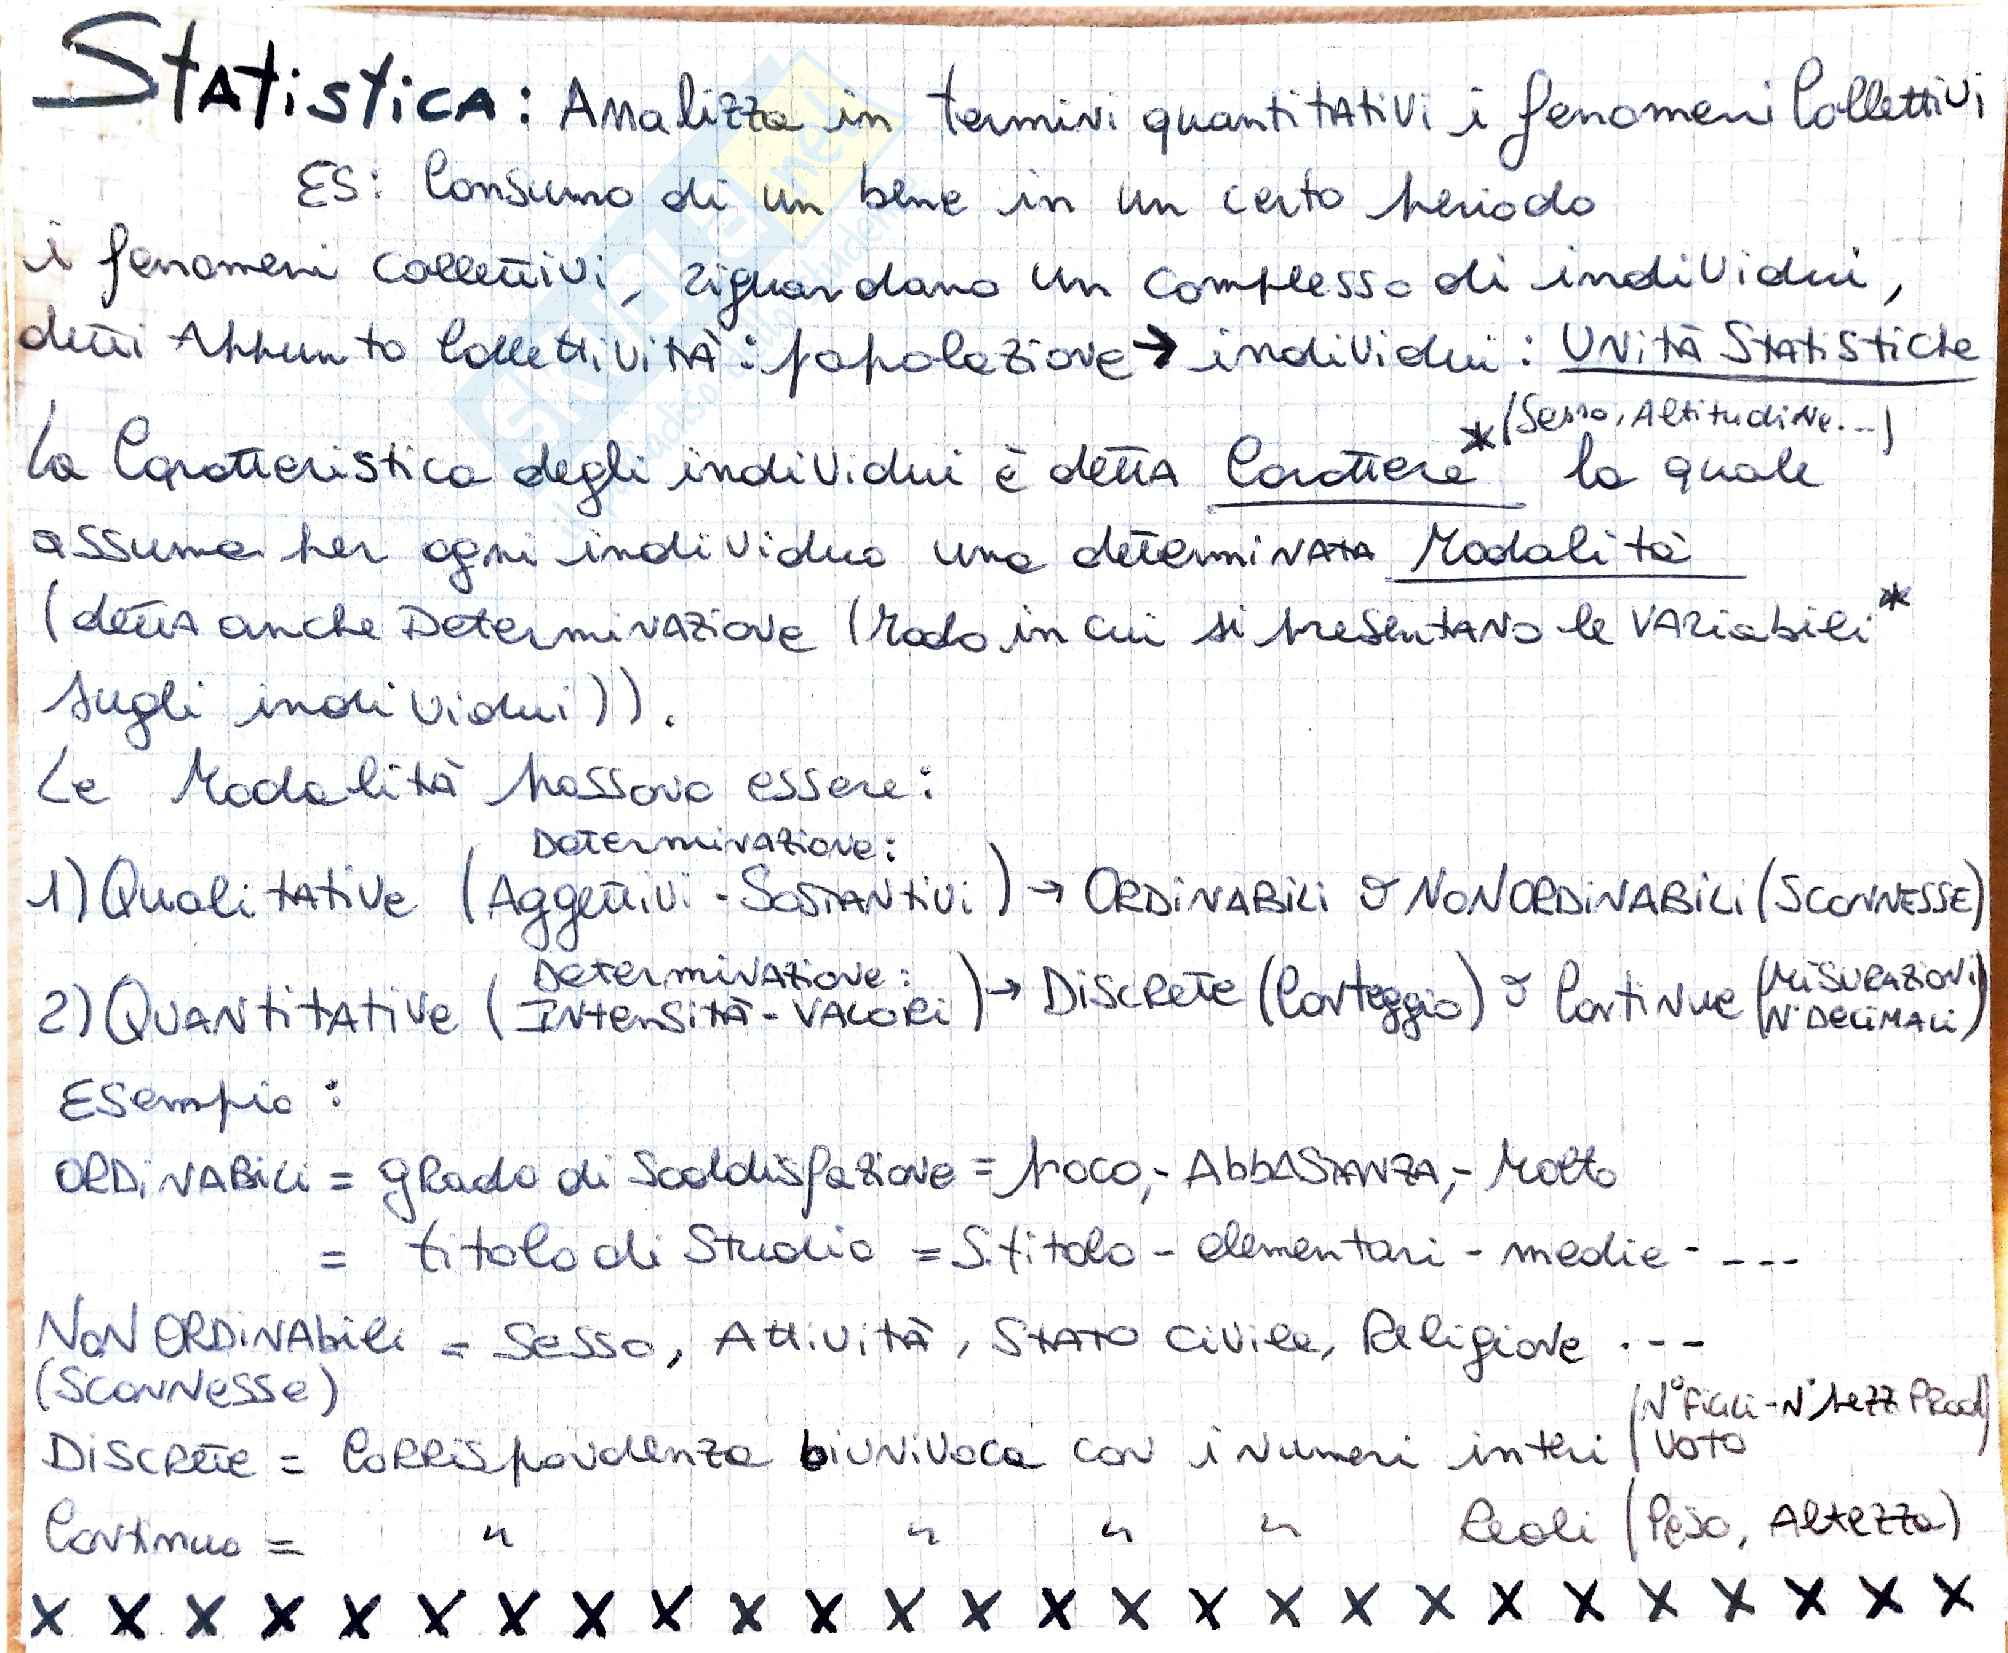 Statistica: Analizza in termini quantitativi i fenomeni Collettivi
ES: Consumo di un bene in un certo periodo
i fenomeni collettivi, riguardano un complesso di individui,
detti Appunto Collettività: popolazione → individui: Unità Statistiche
*(Sesso, Altitudine...)
La Caratteristica degli individui è detta Carattere* la quale
assume per ogni individuo una determinata Modalità
(detta anche Determinazione (Modo in cui si presentano le variabili*
sugli individui)).
Le Modalità possono essere:
Determinazione:
1) Qualitative (Aggettivi - Sostantivi) → ORDINABILI o NON ORDINABILI (SCONNESSE)
2) Quantitative (Determinazione: Intensità - Valori) → Discrete (Conteggio) o Continue (Misurazioni N° Decimali)
Esempio:
ORDINABILI = grado di Soddisfazione = poco,- Abbastanza,- Molto
= titolo di Studio = S.titolo - elementari - medie - ---
NON ORDINAbili = Sesso, Attività, Stato Civile, Religione ---
(Sconnesse)
(N° Figli - N° pezz Prod
Discrete = Corrispondenza biunivoca con i numeri interi Voto)
Continuo = " " " " Reali (Peso, Altezza)
X X X X X X X X X X X X X X X X X X X X X X X X X X
skuola.net